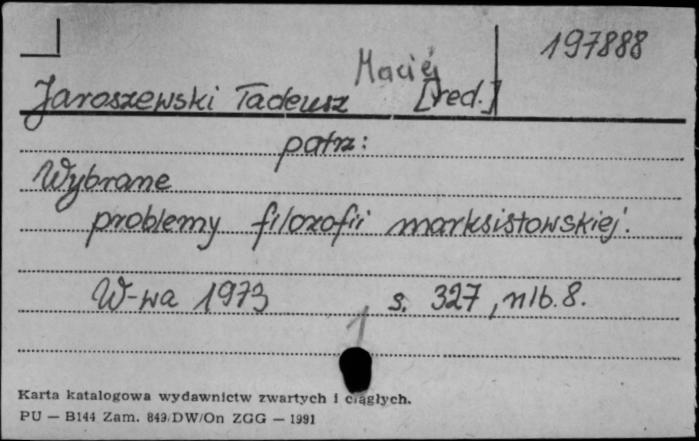 197888
Jaroszewski Tadeusz Maciej [red.]
patrz:
Wybrane
problemy filozofii marksistowskiej.
W-wa 1973 s. 327, nlb. 8.
1
Karta katalogowa wydawnictw zwartych i ciągłych.
PU — B144 Zam. 849/DW/On ZGG — 1991